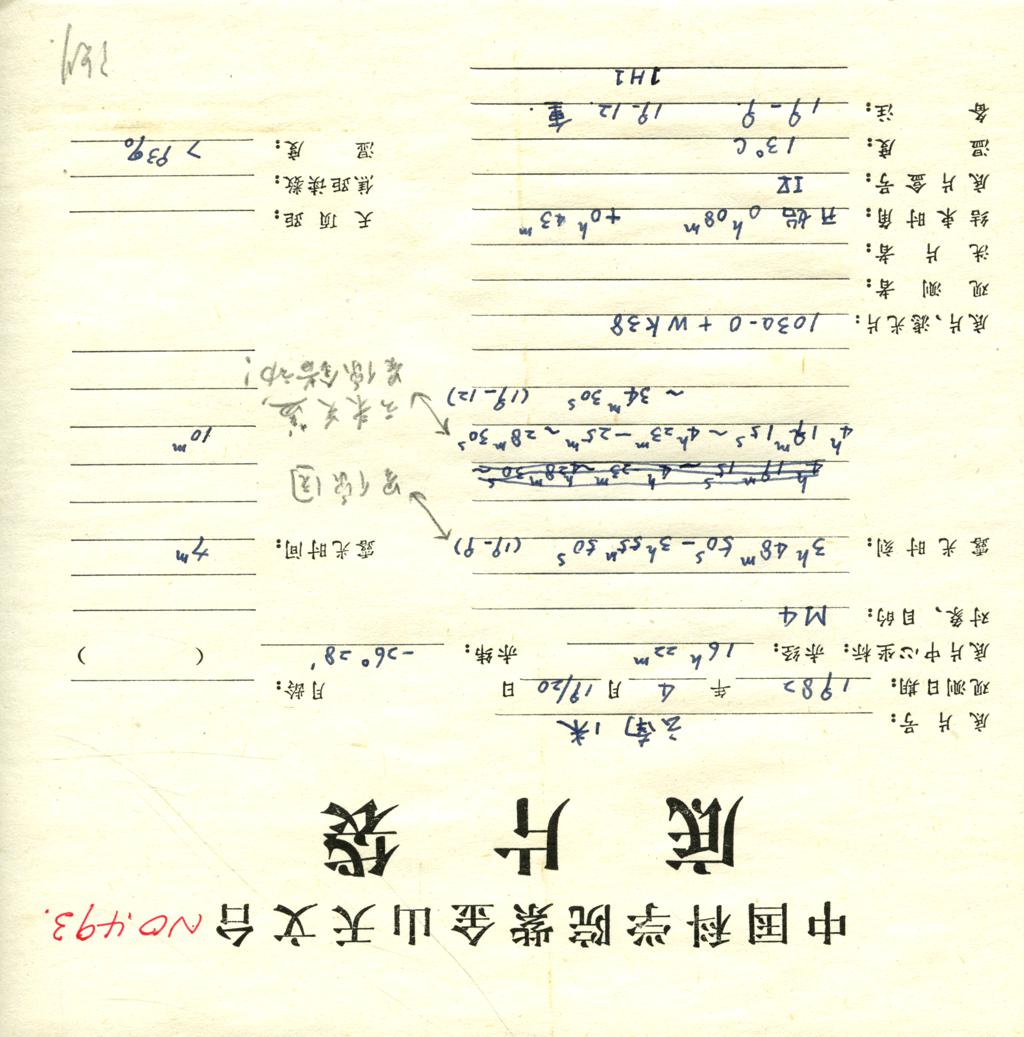 中国科学院紫金山天文台 NO.493.
底片袋
底片号: 云南1米
观测日期: 1982年4月19/20日 月龄:
底片中心坐标: 赤经: 16h 22m 赤纬: -26° 28′ ( )
对象、目的: M4
露光时刻: 3h 48m 50s - 3h 55m 50s (19-9) 露光时间: 7m
星像圆
4h 19m 15s ~ 4h 23m ~ 28m 30s
4h 19m 15s ~ 4h 23m - 25m ~ 28m 30s 10m
~ 34m 30s (19-12)
云来天盖,
星像有移动!
底片、滤光片: 103a-O + WK38
观测者:
洗片者:
结束时角: 开始 0h 08m +0h 43m 天顶距:
底片盒号: IV 焦距读数:
温度: 13°C 湿度: > 93%
备注: 19-9. 19-12. 重.
1H1